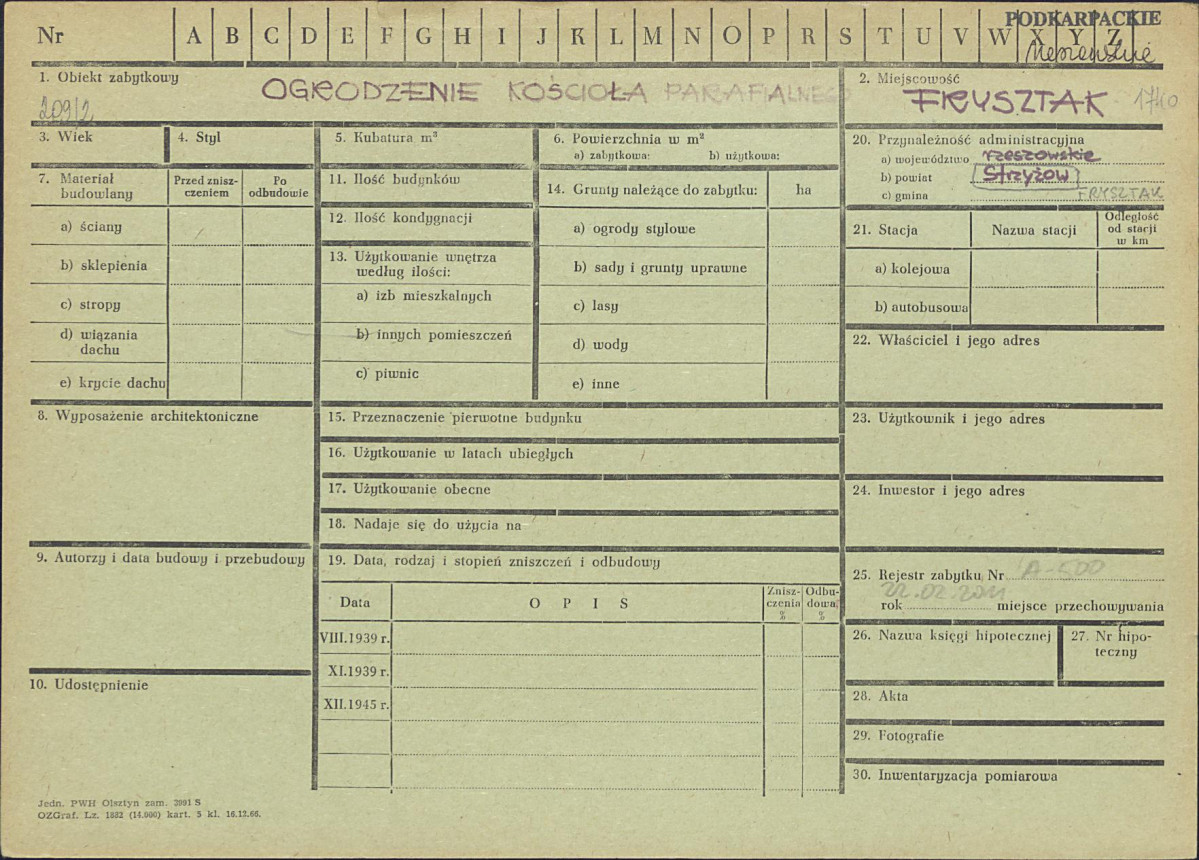 PODKARPACKIE
Nr A B C D E F G H I J K L M N O P R S T U V W X Y Z
1. Obiekt zabytkowy
OGRODZENIE KOŚCIOŁA PARAFIALNEGO
209/2
2. Miejscowość
FRYSZTAK 1740
3. Wiek
4. Styl
5. Kubatura m³
6. Powierzchnia w m²
a) zabytkowa: b) użytkowa:
20. Przynależność administracyjna
a) województwo rzeszowskie
b) powiat Strzyżow
c) gmina FRYSZTAK
7. Materiał budowlany
Przed znisz-
czeniem
Po
odbudowie
a) ściany
b) sklepienia
c) stropy
d) wiązania
dachu
e) krycie dachu
11. Ilość budynków
12. Ilość kondygnacji
13. Użytkowanie wnętrza
według ilości:
a) izb mieszkalnych
b) innych pomieszczeń
c) piwnic
14. Grunty należące do zabytku: ha
a) ogrody stylowe
b) sady i grunty uprawne
c) lasy
d) wody
e) inne
21. Stacja
Nazwa stacji
Odległość
od stacji
w km
a) kolejowa
b) autobusowa
22. Właściciel i jego adres
8. Wyposażenie architektoniczne
15. Przeznaczenie pierwotne budynku
16. Użytkowanie w latach ubiegłych
17. Użytkowanie obecne
18. Nadaje się do użycia na
23. Użytkownik i jego adres
24. Inwestor i jego adres
9. Autorzy i data budowy i przebudowy
19. Data, rodzaj i stopień zniszczeń i odbudowy
Data
OPIS
Znisz-
czenia
%
Odbu-
dowa
%
VIII.1939 r.
XI.1939 r.
XII.1945 r.
25. Rejestr zabytku Nr A-500
22.02.2011
rok miejsce przechowywania
26. Nazwa księgi hipotecznej
27. Nr hipo-
teczny
10. Udostępnienie
28. Akta
29. Fotografie
30. Inwentaryzacja pomiarowa
Jedn. PWH Olsztyn zam. 3991 S
OZGraf. Lz. 1882 (14.000) kart. 5 kl. 16.12.66.